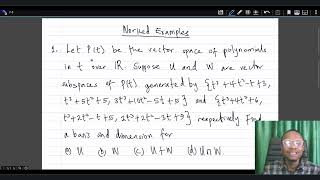 Worked Examples
1. Let P(t) be the vector space of polynomials
in t over IR. Suppose U and W are vector
subspaces of P(t) generated by {t³+4t²-t+3,
t³+5t²+5, 3t³+10t²-5t+5} and {t³+4t²+6,
t³+2t²-t+5, 2t³+2t²-3t+9} respectively. Find
a basis and dimension for
(a) U (b) W (c) U+W (d) U∩W